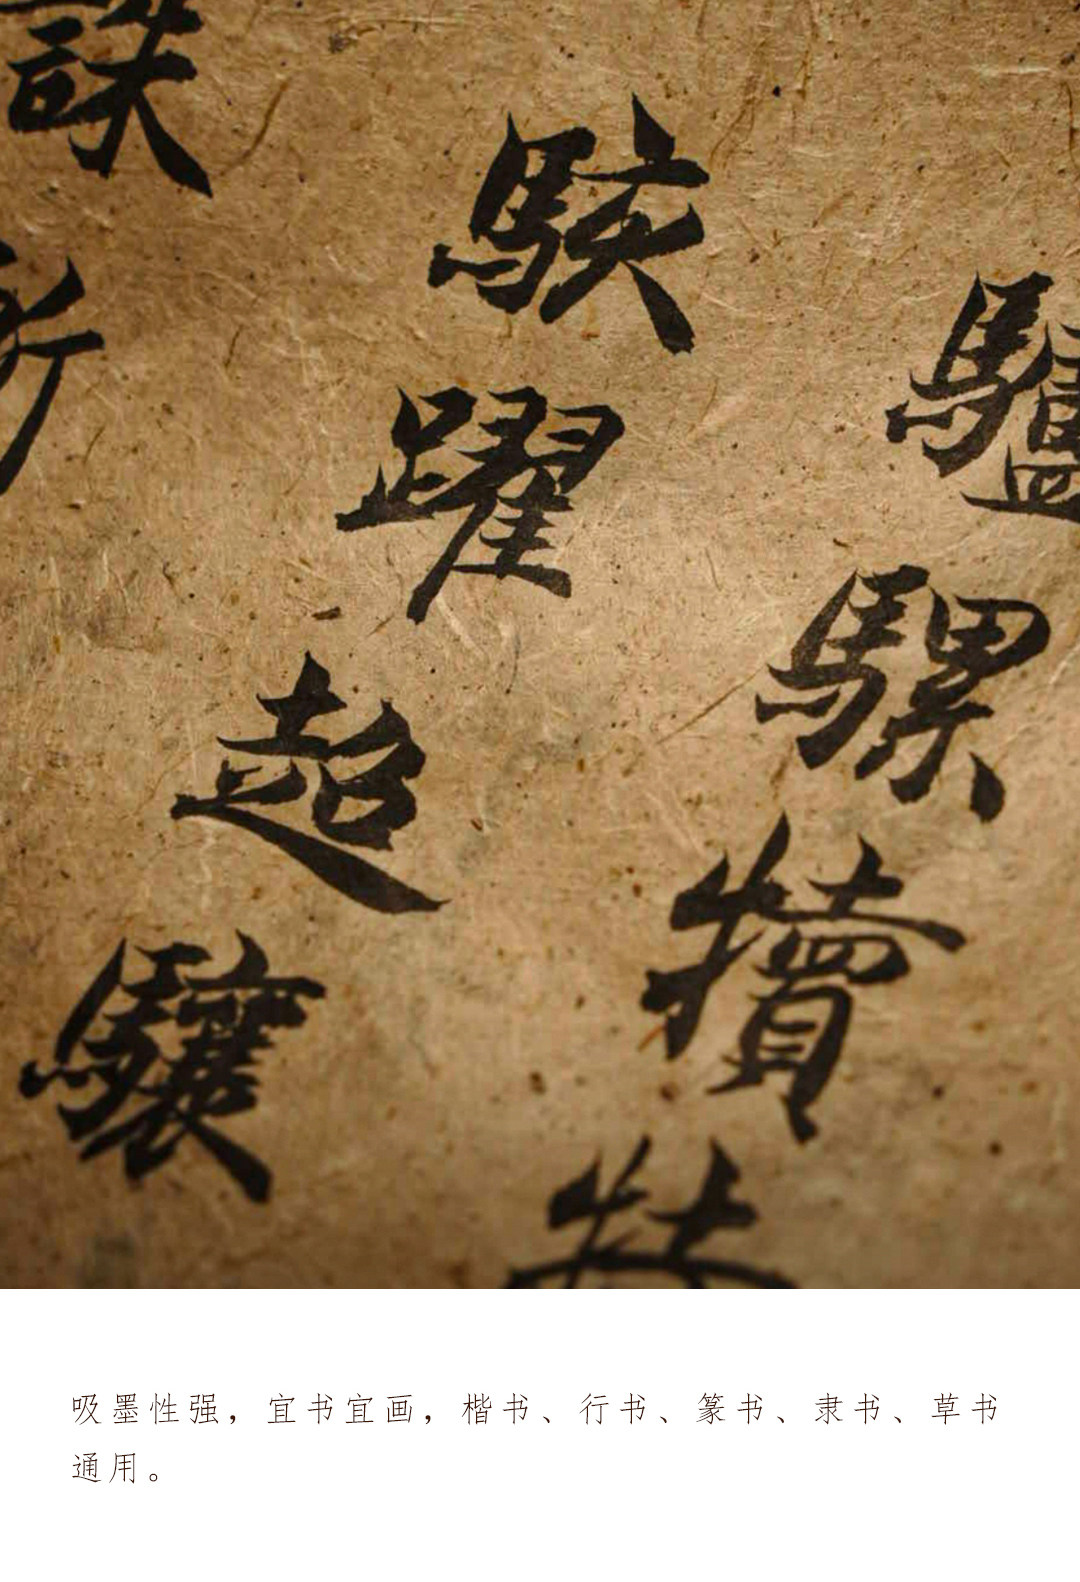 驢騾犢特
駭躍超驤
誅斬
吸墨性强，宜书宜画，楷书、行书、篆书、隶书、草书
通用。